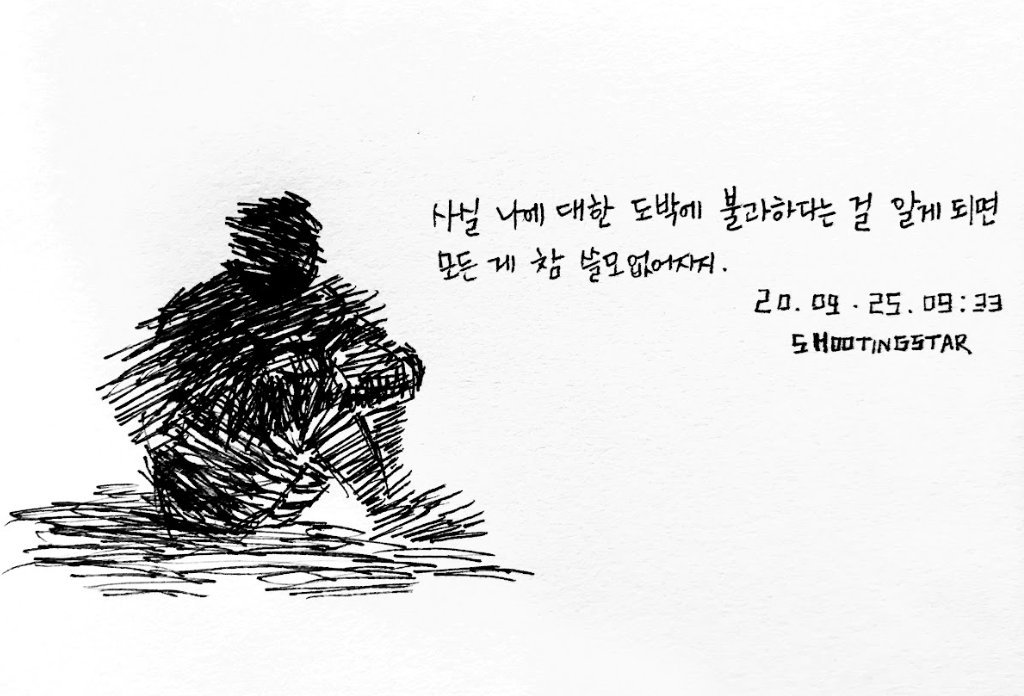 사실 나에 대한 도박에 불과하다는 걸 알게 되면
모든 게 참 쓸모없어지지.
20.09.25.09:33
SHOOTINGSTAR